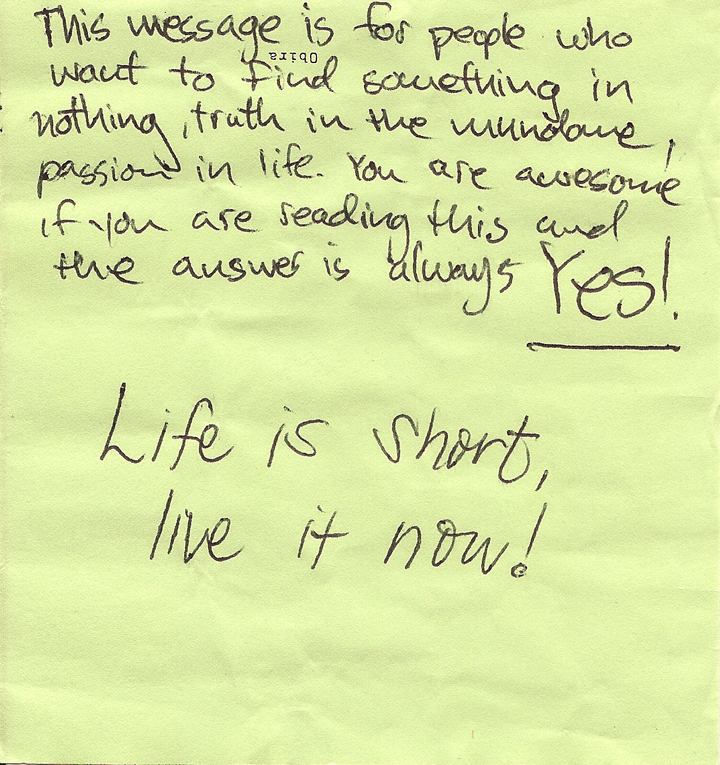 This message is for people who
Obira
want to find something in
nothing, truth in the mundane,
passion in life. You are awesome
if you are reading this and
the answer is always Yes!
Life is short,
live it now!